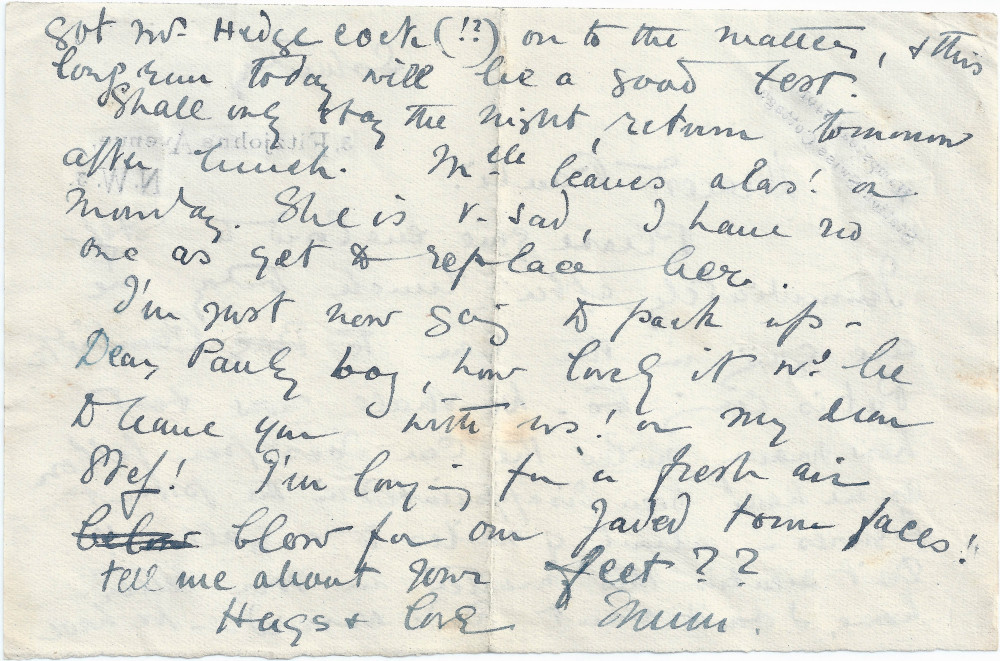 got Mr Hedgecock (!?) on to the matter, & this
long run today will be a good test.
Shall only stay the night, return tomorrow
after lunch. Mlle leaves alas! on
Monday. She is v. sad, I have no
one as yet to replace her.
I'm just now going to pack up -
Dear Pauly boy, how lovely it wd be
to have you with us! or my dear
Stef! I'm longing for a fresh air
below blow for our jaded town faces!
tell me about your feet??
Hugs & love Mum.
3, Fitzjohns Avenue
N.W.3